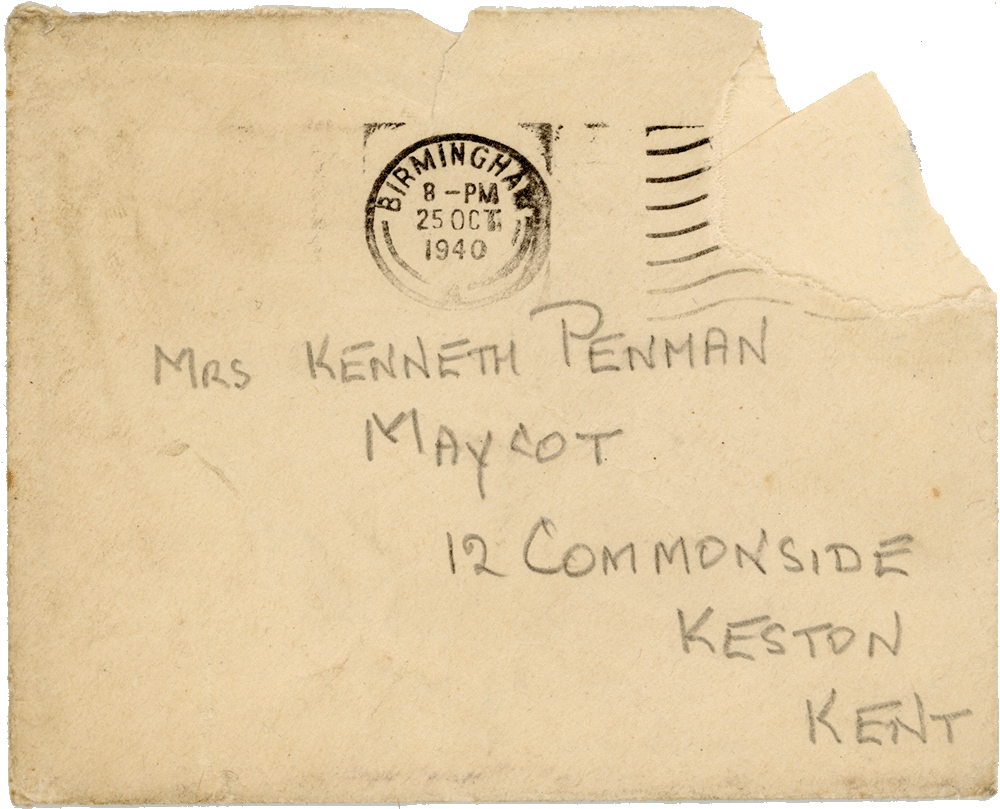 BIRMINGHAM
8 - PM
25 OCT
1940
MRS KENNETH PENMAN
MAYCOT
12 COMMONSIDE
KESTON
KENT